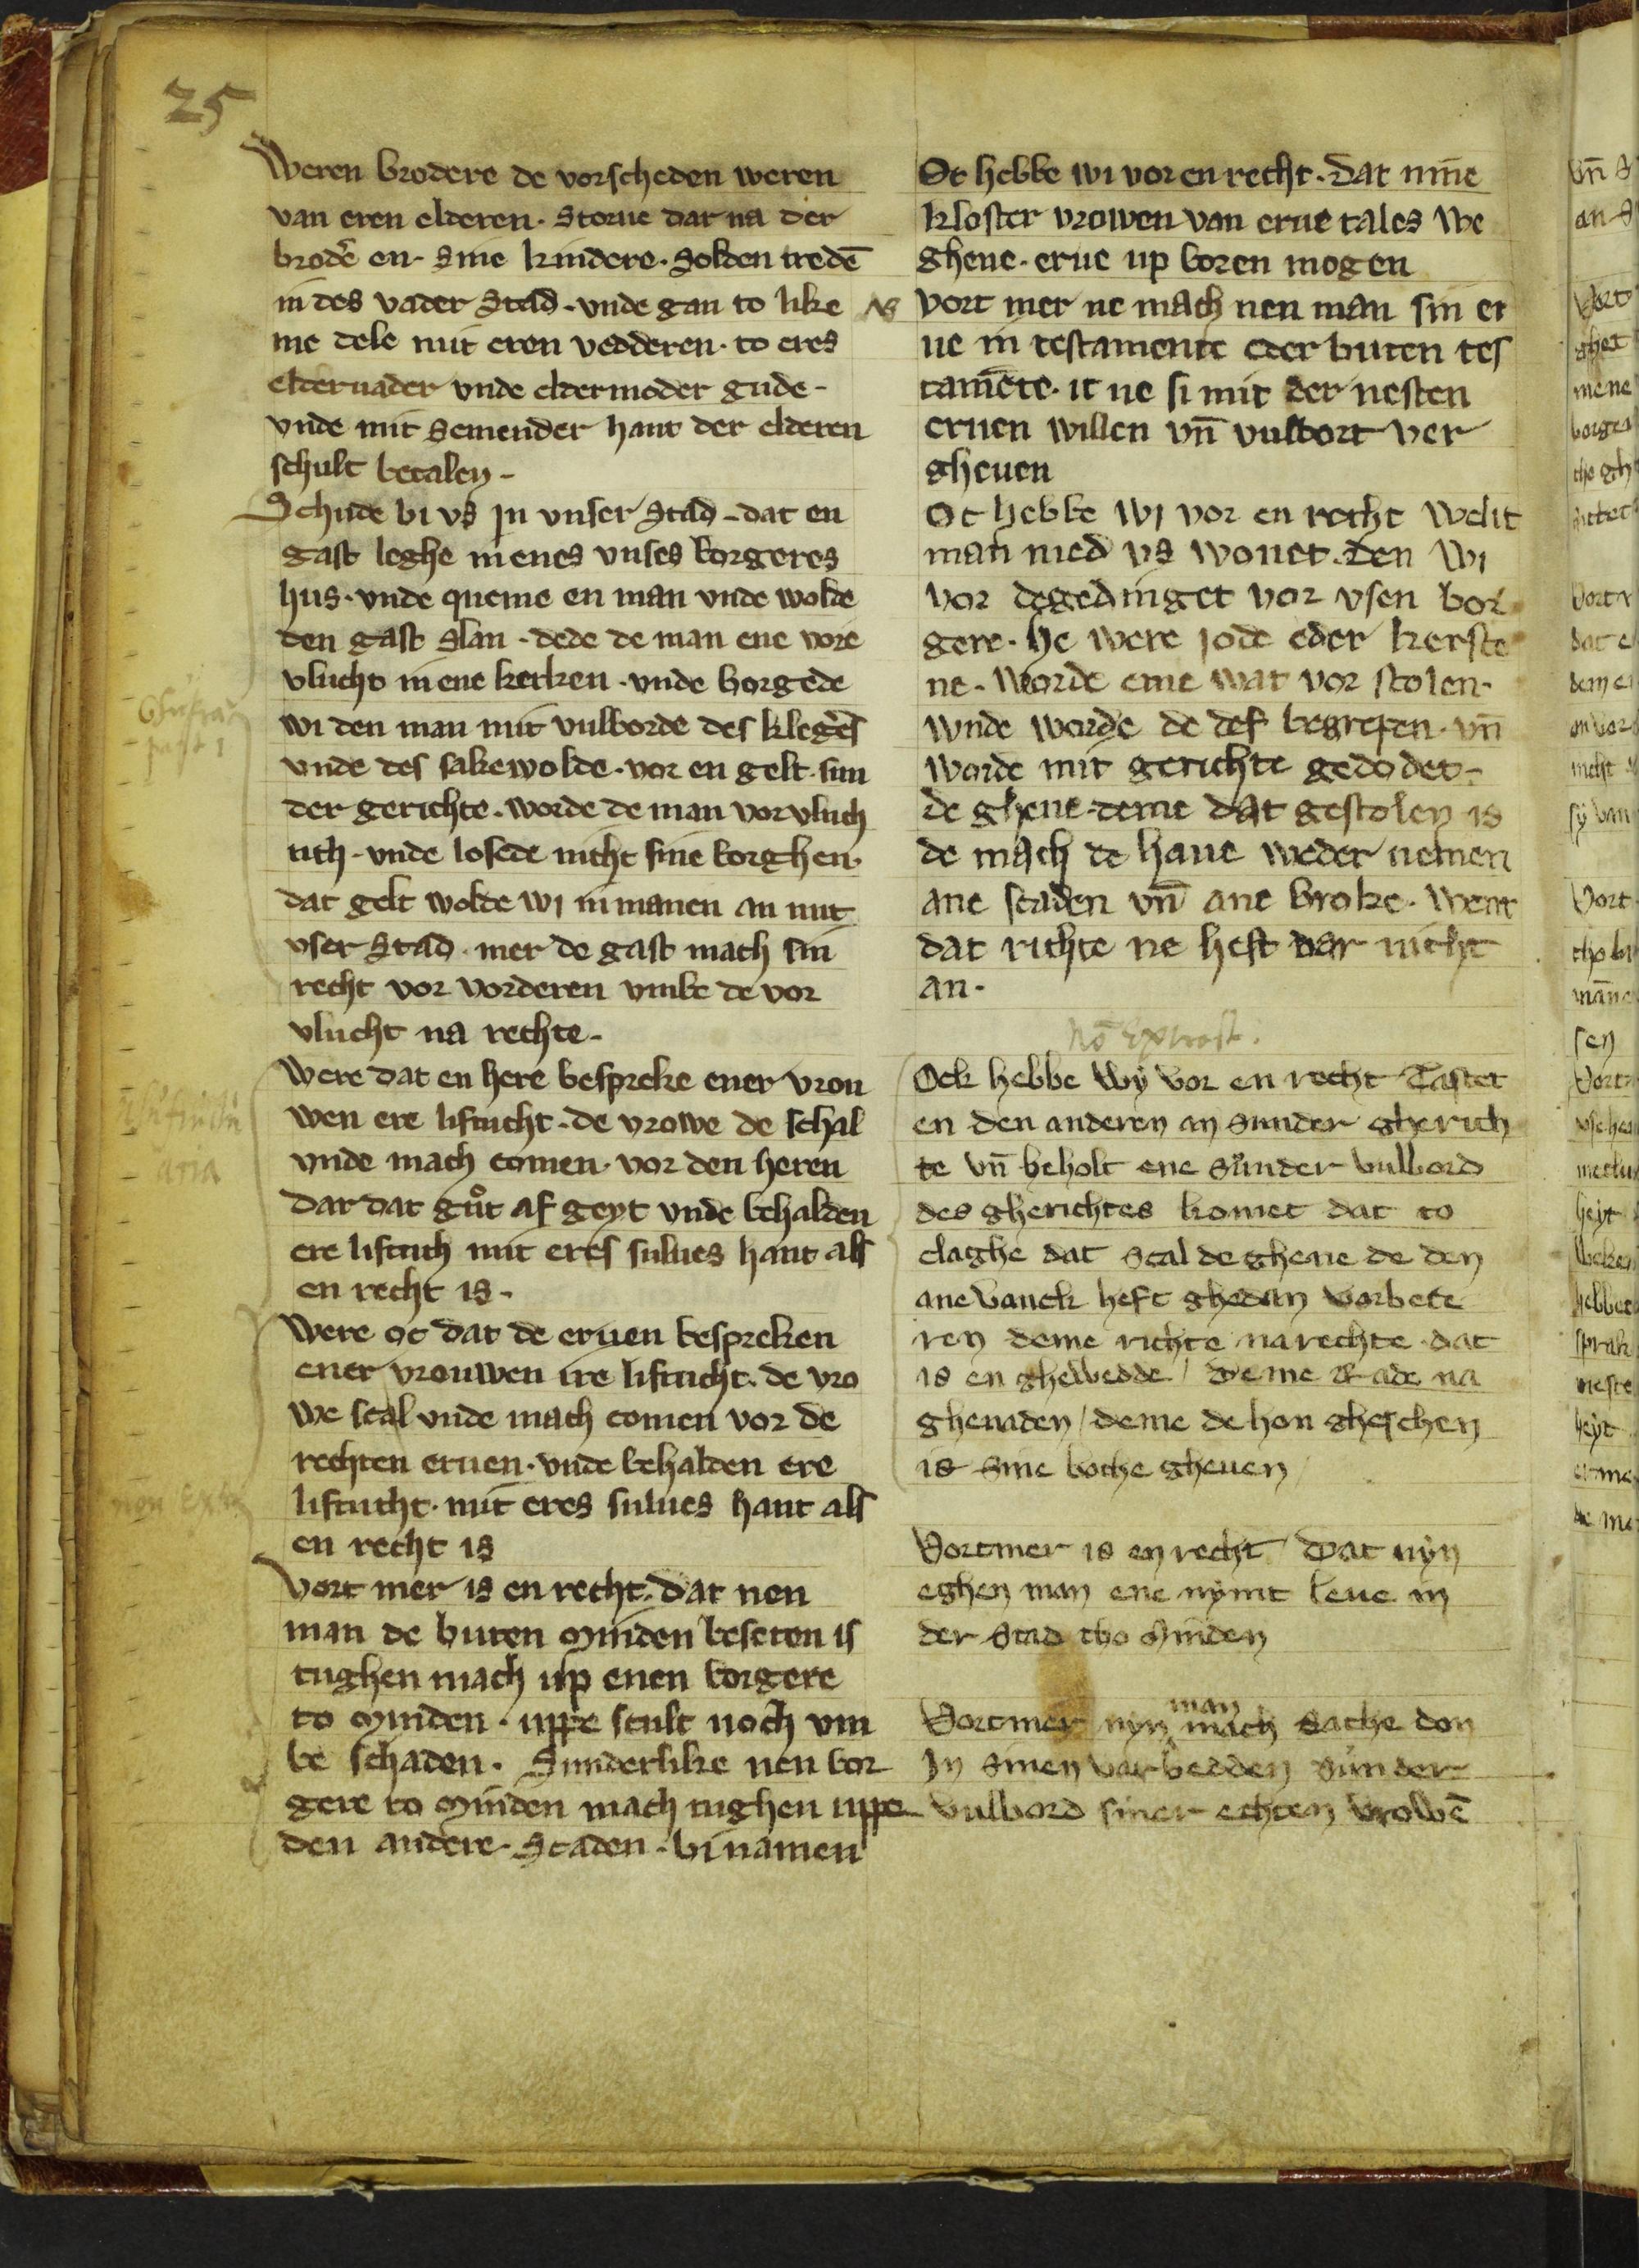 25
Weren brodere de vorscheden weren
van eren elderen. Storue dar na der
brodere en. Sine kindere. Solden tredē
in des vader Stad. vnde gan to like
me dele mit eren vedderen. to eres
elderuader vnde eldermoder gude.
vnde mit Semender hant der elderen
schult betalen.
Schude bi vs in vnser Stad. dat en
gast leghe in enes vnses borgeres
hus. vnde queme en man vnde wolde
den gast slan. dede de man ene vore
vlucht in ene kerken. vnde borgede
wi den man mit vulborde des klegers
vnde des sakewolde. vor en gelt. sun
der gerichte. worde de man vorvluch
tich. vnde losede nicht sine borghen.
dat gelt wolde wi inmanen an nut
vser Stad. mer de gast mach sin
recht vor vorderen vmbe de vor
vlucht na rechte.
Were dat en here bespreke ener vrou
wen ere liftucht. de vrowe de schal
vnde mach comen. vor den heren
dar dat gůt af geyt vnde behalden
ere liftuch mit eres sulues hant als
en recht is.
Were oc dat de eruen bespreken
ener vrouwen ire liftucht. de vro
we scal vnde mach comen vor de
rechten eruen. vnde behalden ere
liftucht. mit eres sulues hant als
en recht is
Vort mer is en recht. dat nen
man de buten Minden beseten is
tughen mach up enen borgere
to Minden. uppe scult noch vm
be schaden. Sunderlike nen bor
gere to Minden mach tughen uppe
den andere. Staden. bi namen
Oc hebbe wi vor en recht. dat nine
kloster vrowen van erue tales we
ghene. erue up boren mogen
Vort mer ne mach nen man sin er
ue in testamente eder buten tes
tamēte. it ne si mit der nesten
eruen willen vn̄ vulbort ver
gheuen
Oc hebbe wi vor en recht Welic
man med vs wonet. den wi
vor degedinget vor vsen bor
gere. he were jode eder kerste
ne. Worde eme wat vor stolen.
vnde worde de def begrepen. vn̄
worde mit gerichte gedodet.
de ghene. deme dat gestolen is
de mach de haue weder nemen
ane scaden vn̄ ane broke. went
dat richte ne heft dar nicht
an.
Ock hebbe Wÿ vor en recht Tastet
en den anderen an sunder gherich
te vn̄ beholt ene sůnder vulbord
des gherichtes komet dat to
claghe dat scal de ghene de den
ane vanck heft ghedan vorbete
ren deme richte na rechte dat
is en ghewedde / deme Rade na
ghenaden / deme de hon gheschen
is sine bothe gheuen
Vortmer is en recht dat nÿn
eghen man ene nÿmt leue in
der Stad tho Minden
Vortmer nÿn man mach sathe don
In sinen varbedden sůnder
vulbord siner echten vrowē